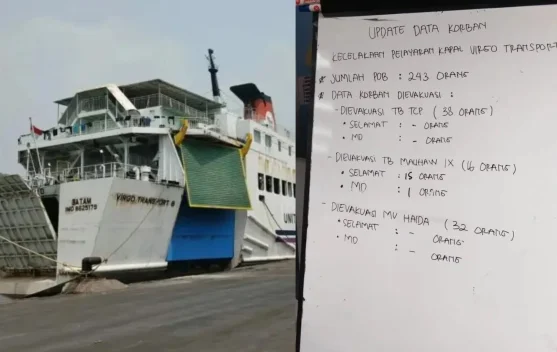 BATAM
VIRGO TRANSPORT 8
UNIT
UPDATE DATA KORBAN
KECELAKAAN PELAYARAN KAPAL VIRGO TRANSPORT
* JUMLAH POB : 243 ORANG
* DATA KORBAN DIEVAKUASI :
- DIEVAKUASI TB TCP (38 ORANG)
• SELAMAT : - ORANG
• MD : - ORANG
- DIEVAKUASI TB MAUHAU IX (16 ORANG)
• SELAMAT : 15 ORANG
• MD : 1 ORANG
- DIEVAKUASI MV HAIDA (32 ORANG)
• SELAMAT : - ORANG
• MD : - ORANG